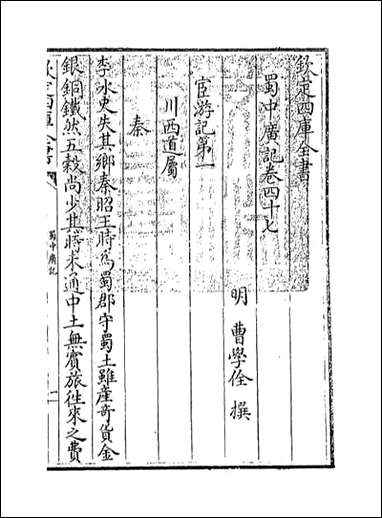 欽定四庫全書
蜀中廣記卷四十七
明 曹學佺 撰
宦游記第一
川西道屬
秦
李冰史失其鄉秦昭王時為蜀郡守蜀土雖產奇貨金
銀銅鐵然五穀尚少其時未通中土無賓旅徃來之費
蜀中廣記
一